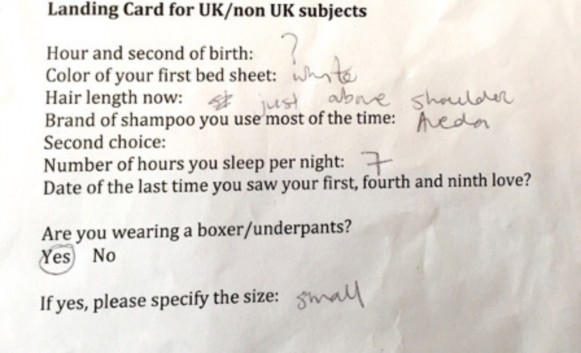 Landing Card for UK/non UK subjects
Hour and second of birth: ?
Color of your first bed sheet: white
Hair length now: just above shoulder
Brand of shampoo you use most of the time: Aveda
Second choice:
Number of hours you sleep per night: 7
Date of the last time you saw your first, fourth and ninth love?
Are you wearing a boxer/underpants?
Yes No
If yes, please specify the size: small